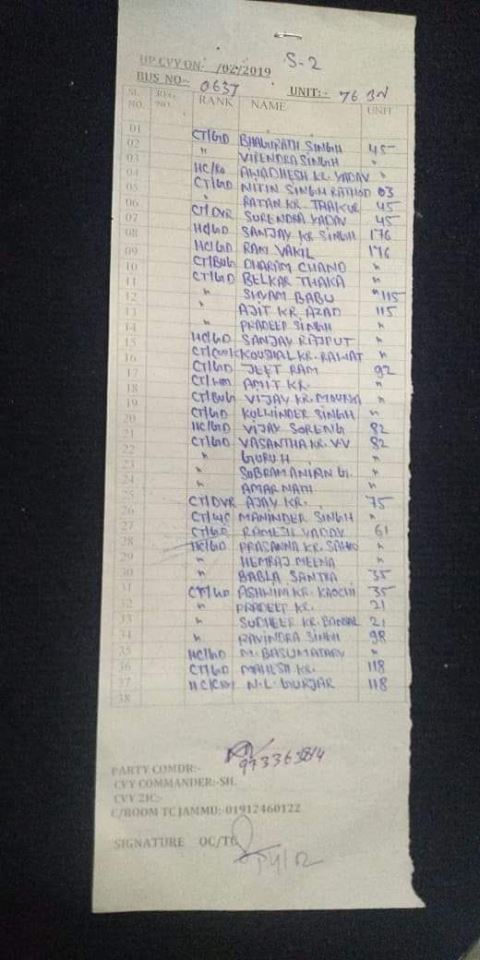 S-2
UP CVY ON- /02/2019
BUS NO:- 0637 UNIT:- 76 BN
SL. NO. REG. NO. RANK NAME UNIT
01 CT/GD BHAGIRATH SINGH 45
02 " VIRENDRA SINGH "
03 HC/RO AWADHESH KR. YADAV "
04 CT/GD NITIN SINGH RATHOD 03
05 " RATAN KR. THAKUR 45
06 CT/DVR SURENDRA YADAV 45
07 HC/GD SANJAY KR. SINGH 176
08 HC/GD RAM VAKIL 176
09 CT/BUG DHARAM CHAND "
10 CT/GD BELKAR THAKA "
11 " SHYAM BABU 115
12 " AJIT KR. AZAD 115
13 " PRADEEP SINGH "
14 HC/GD SANJAY RAJPUT "
15 CT/COOK KOUSHAL KR. RAWAT "
16 CT/GD JEET RAM 92
17 AMIT KR. "
18 CT/BUG VIJAY KR. MOURYA "
19 CT/GD KULWINDER SINGH "
20 HC/GD VIJAY SORENG 82
21 CT/GD VASANTHA KR. V.V 82
22 " GURU.H "
23 " SUBRAMANIAN G. "
24 " AMARNATH "
25 CT/DVR AJAY KR. 75
26 MANINDER SINGH "
27 CT/GD RAMESH YADAV 61
28 HC/GD PRASANNA KR. SAHOO "
29 " HEMRAJ MEENA "
30 " BABLA SANTRA 35
31 CT/GD ASHWIM KR. KAOCHI 35
32 " PRADEEP KR. 21
33 " SUDHEER KR. BANSAL 21
34 " RAVINDRA SINGH 98
35 HC/GD M. BASUMATARY "
36 CT/GD MAHESH KR. 118
37 N.L. GURJAR 118
38
PARTY COMDR:-
CVY COMMANDER:-SH.
CVY 2IC:-
C/ROOM TC JAMMU:-01912460122
SIGNATURE OC/TC